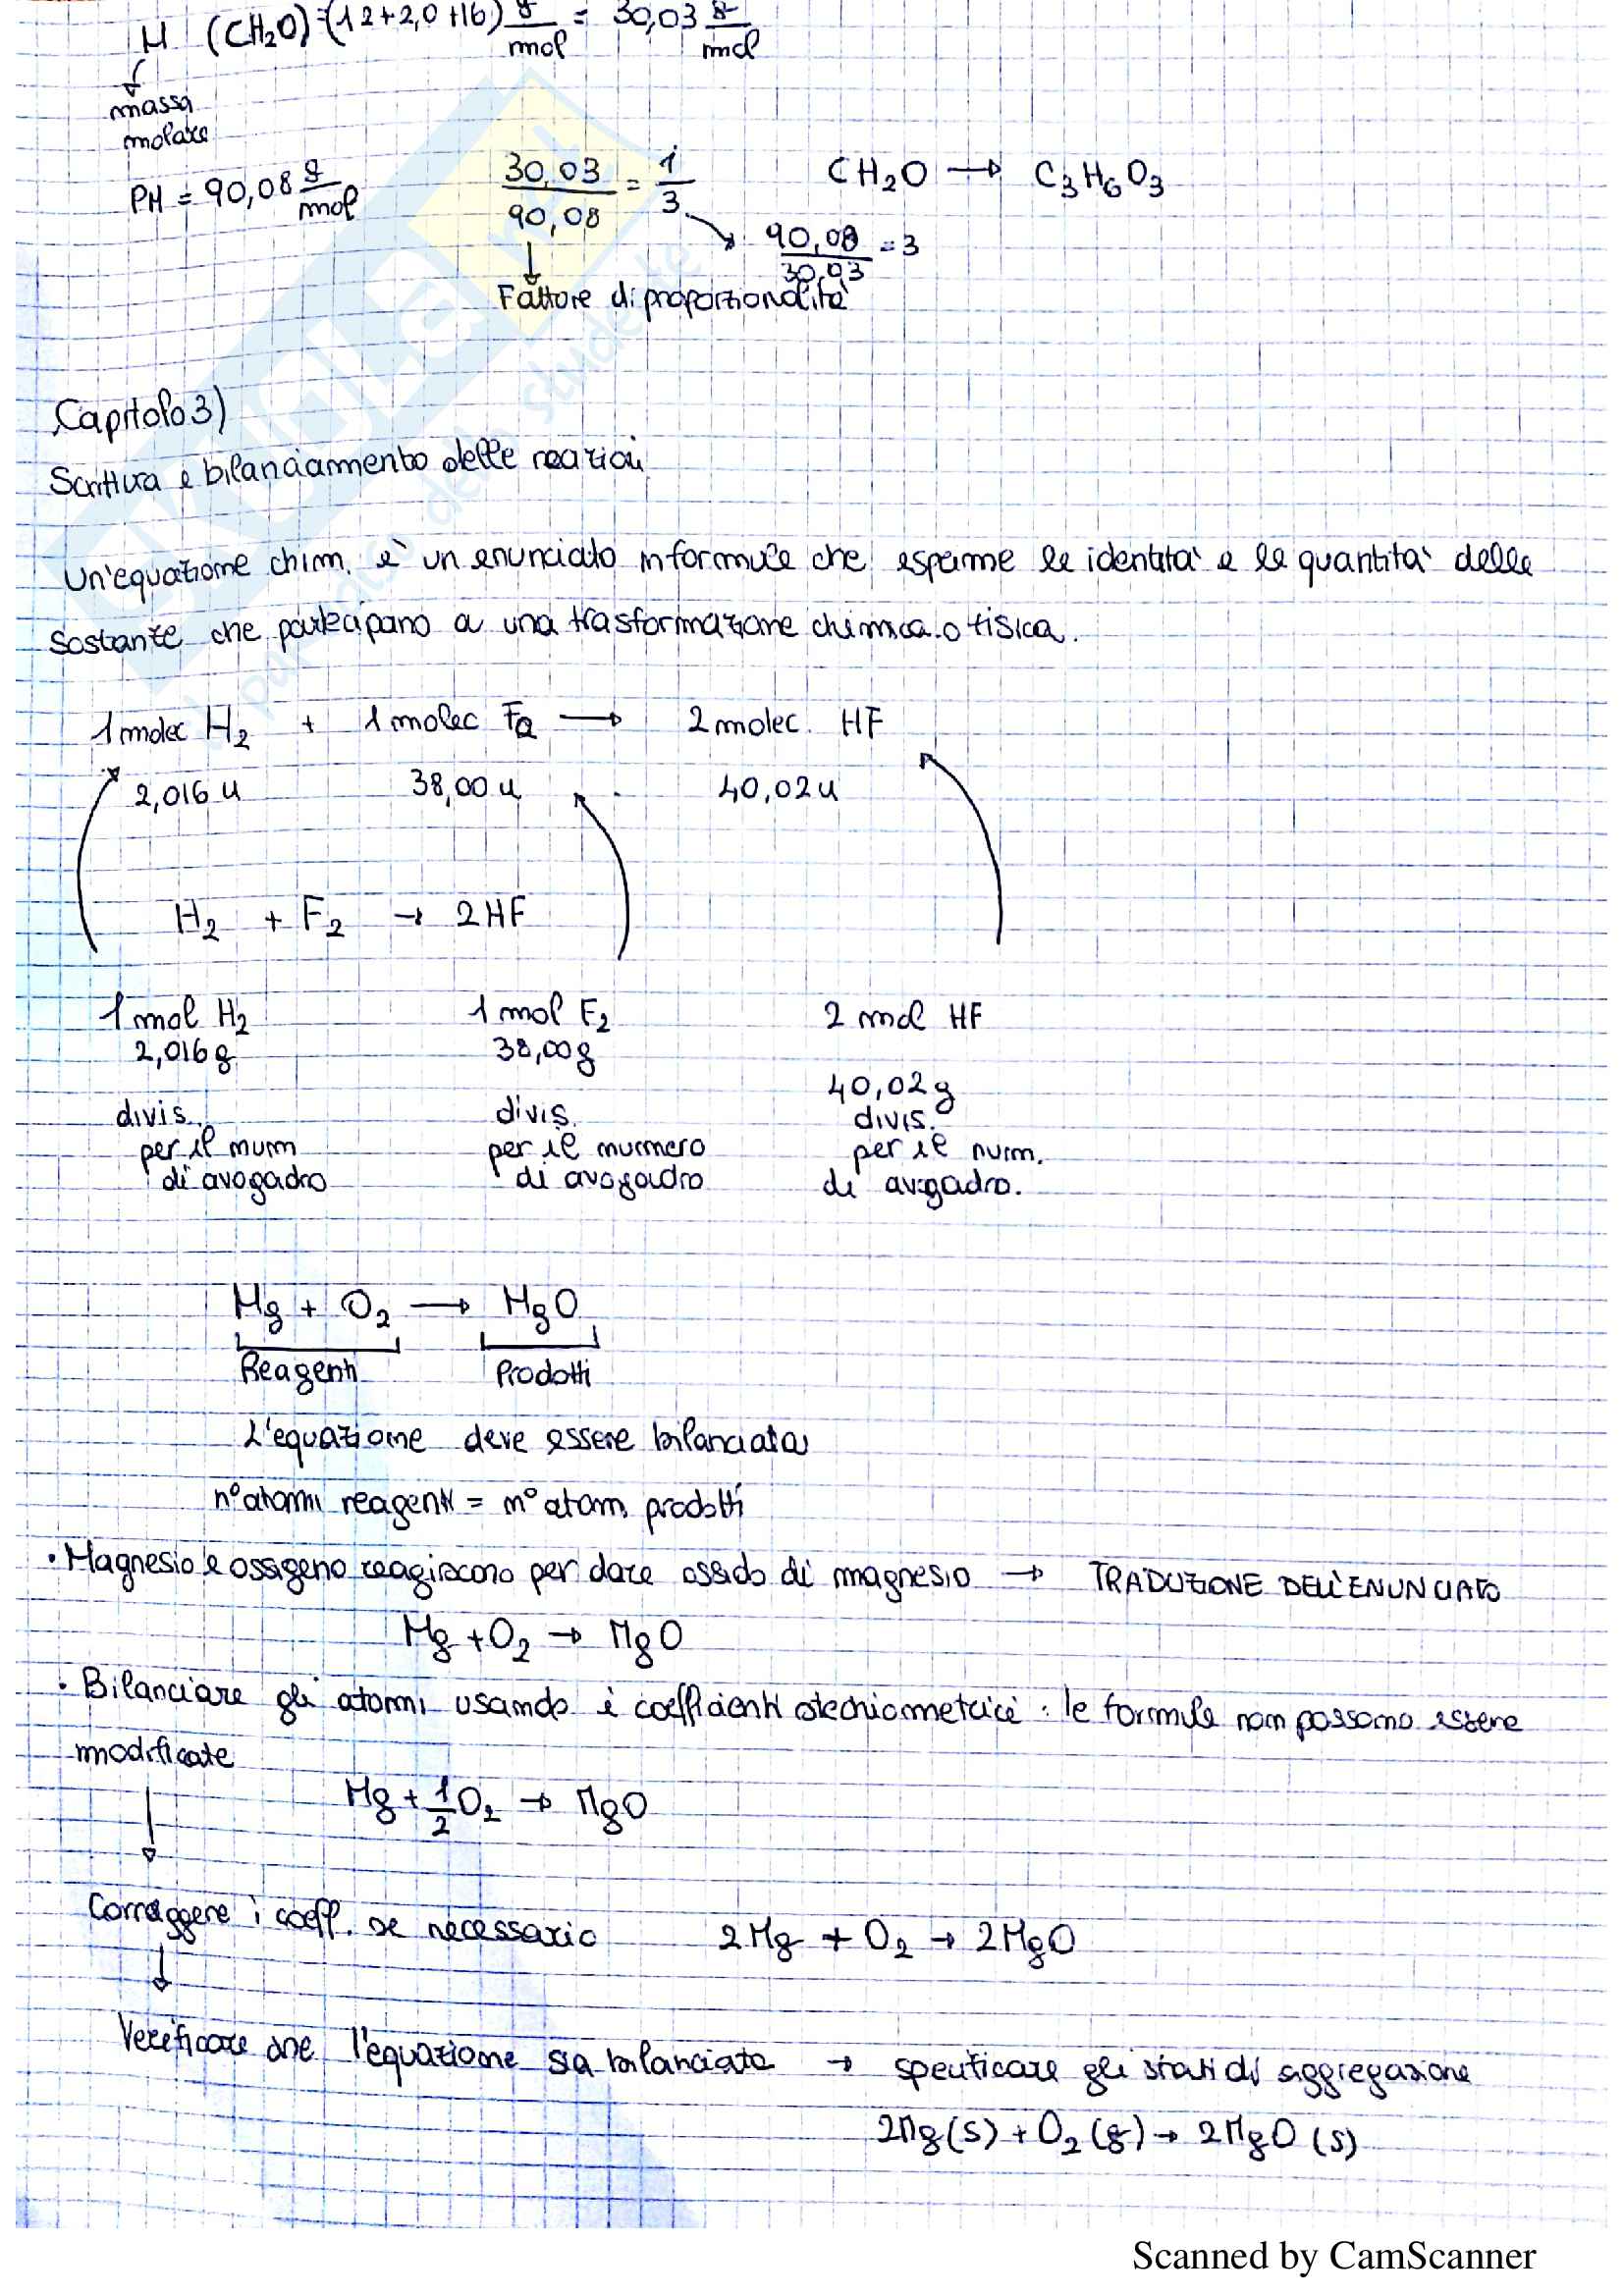 M (CH₂O)=(12+2,0+16) g/mol = 30,03 g/mol
massa
molare
PM = 90,08 g/mol 30,03/90,08 = 1/3 CH₂O → C₃H₆O₃
90,08/30,03 = 3
Fattore di proporzionalità
Capitolo 3)
Scrittura e bilanciamento delle reazioni
Un'equazione chim. è un enunciato in formule che esprime le identità e le quantità delle
sostanze che partecipano a una trasformazione chimica o fisica.
1 molec H₂ + 1 molec F₂ → 2 molec. HF
2,016 u 38,00 u 40,02 u
H₂ + F₂ → 2HF
1 mol H₂ 1 mol F₂ 2 mol HF
2,016 g 38,00 g
40,02 g
divis. divis. divis.
per il num per il numero per il num.
di avogadro di avogadro di avogadro.
Mg + O₂ → MgO
Reagenti Prodotti
L'equazione deve essere bilanciata
n° atomi reagenti = n° atomi prodotti
• Magnesio e ossigeno reagiscono per dare ossido di magnesio → TRADUZIONE DELL'ENUNCIATO
Mg + O₂ → MgO
• Bilanciare gli atomi usando i coefficienti stechiometrici : le formule non possono essere
modificate
Mg + 1/2 O₂ → MgO
Correggere i coeff. se necessario 2Mg + O₂ → 2MgO
Verificare che l'equazione sia bilanciata → specificare gli stati di aggregazione
2Mg(s) + O₂ (g) → 2MgO (s)
Scanned by CamScanner